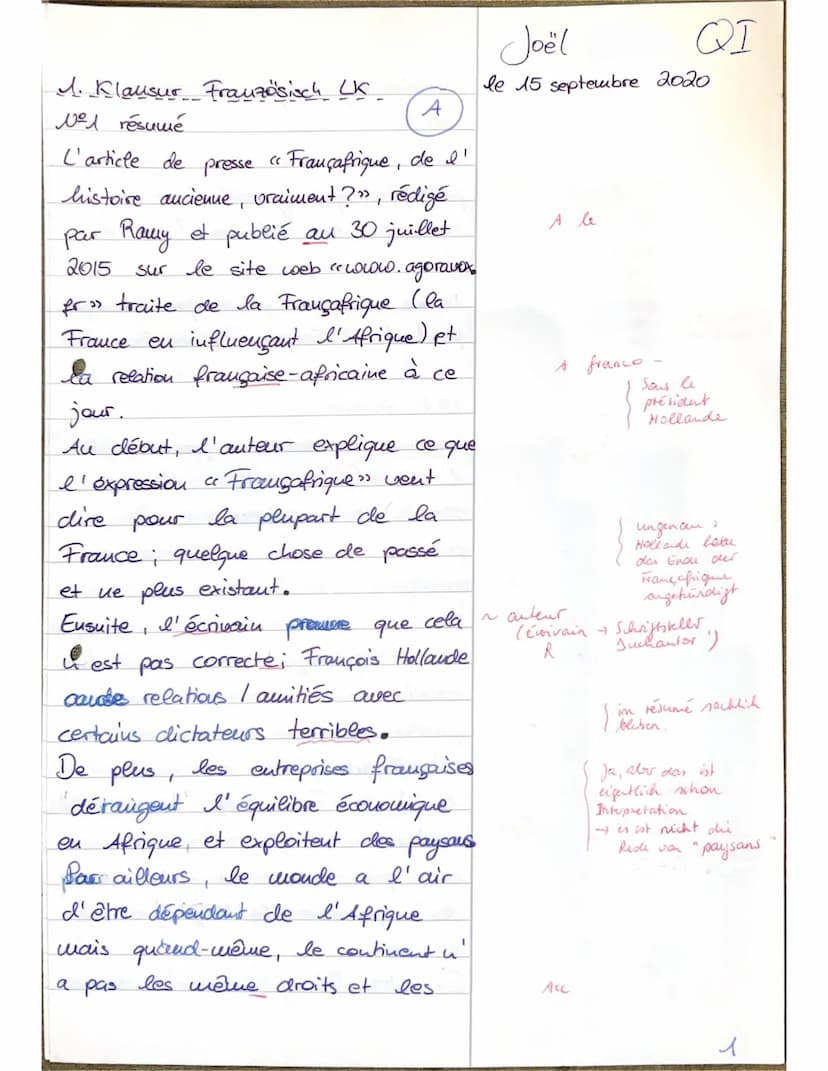 Joël QI
le 15 septembre 2020
1. Klausur Französisch LK
A
N°1 résumé
L'article de presse « Françafrique, de l'
histoire ancienne, vraiment ? », rédigé
par Ramy et publié au 30 juillet
A le
2015 sur le site web « www.agoravox.
fr » traite de la Françafrique (la
France en influençant l'Afrique) et
la relation française-africaine à ce
A franco -
jour.
Sous le
président
Hollande
Au début, l'auteur explique ce que
l'éxpression « Françafrique » veut
dire pour la plupart de la
France ; quelque chose de passé
et ne plus existant.
ungenau :
Hollande hatte
das Ende der
Françafrique
angekündigt
Ensuite, l'écrivain prouve que cela
~ auteur
(écrivain → Schriftsteller
R
n'est pas correcte ; François Hollande
relations / amitiés avec
certains dictateurs terribles.
im résumé sachlich
bleiben.
De plus, les entreprises françaises
dérangent l'équilibre économique
en Afrique, et exploitent des paysans
Ja, aber das ist
eigentlich schon
Interpretation
→ es ist nicht die
Rede von "paysans"
Par ailleurs, le monde a l'air
d'être dépendant de l'Afrique
mais quand-même, le continent n'
a pas les même droits et les
Acc
1